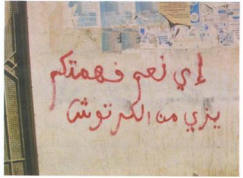 إي نعم فهمتكم
يزي من الكرتوش